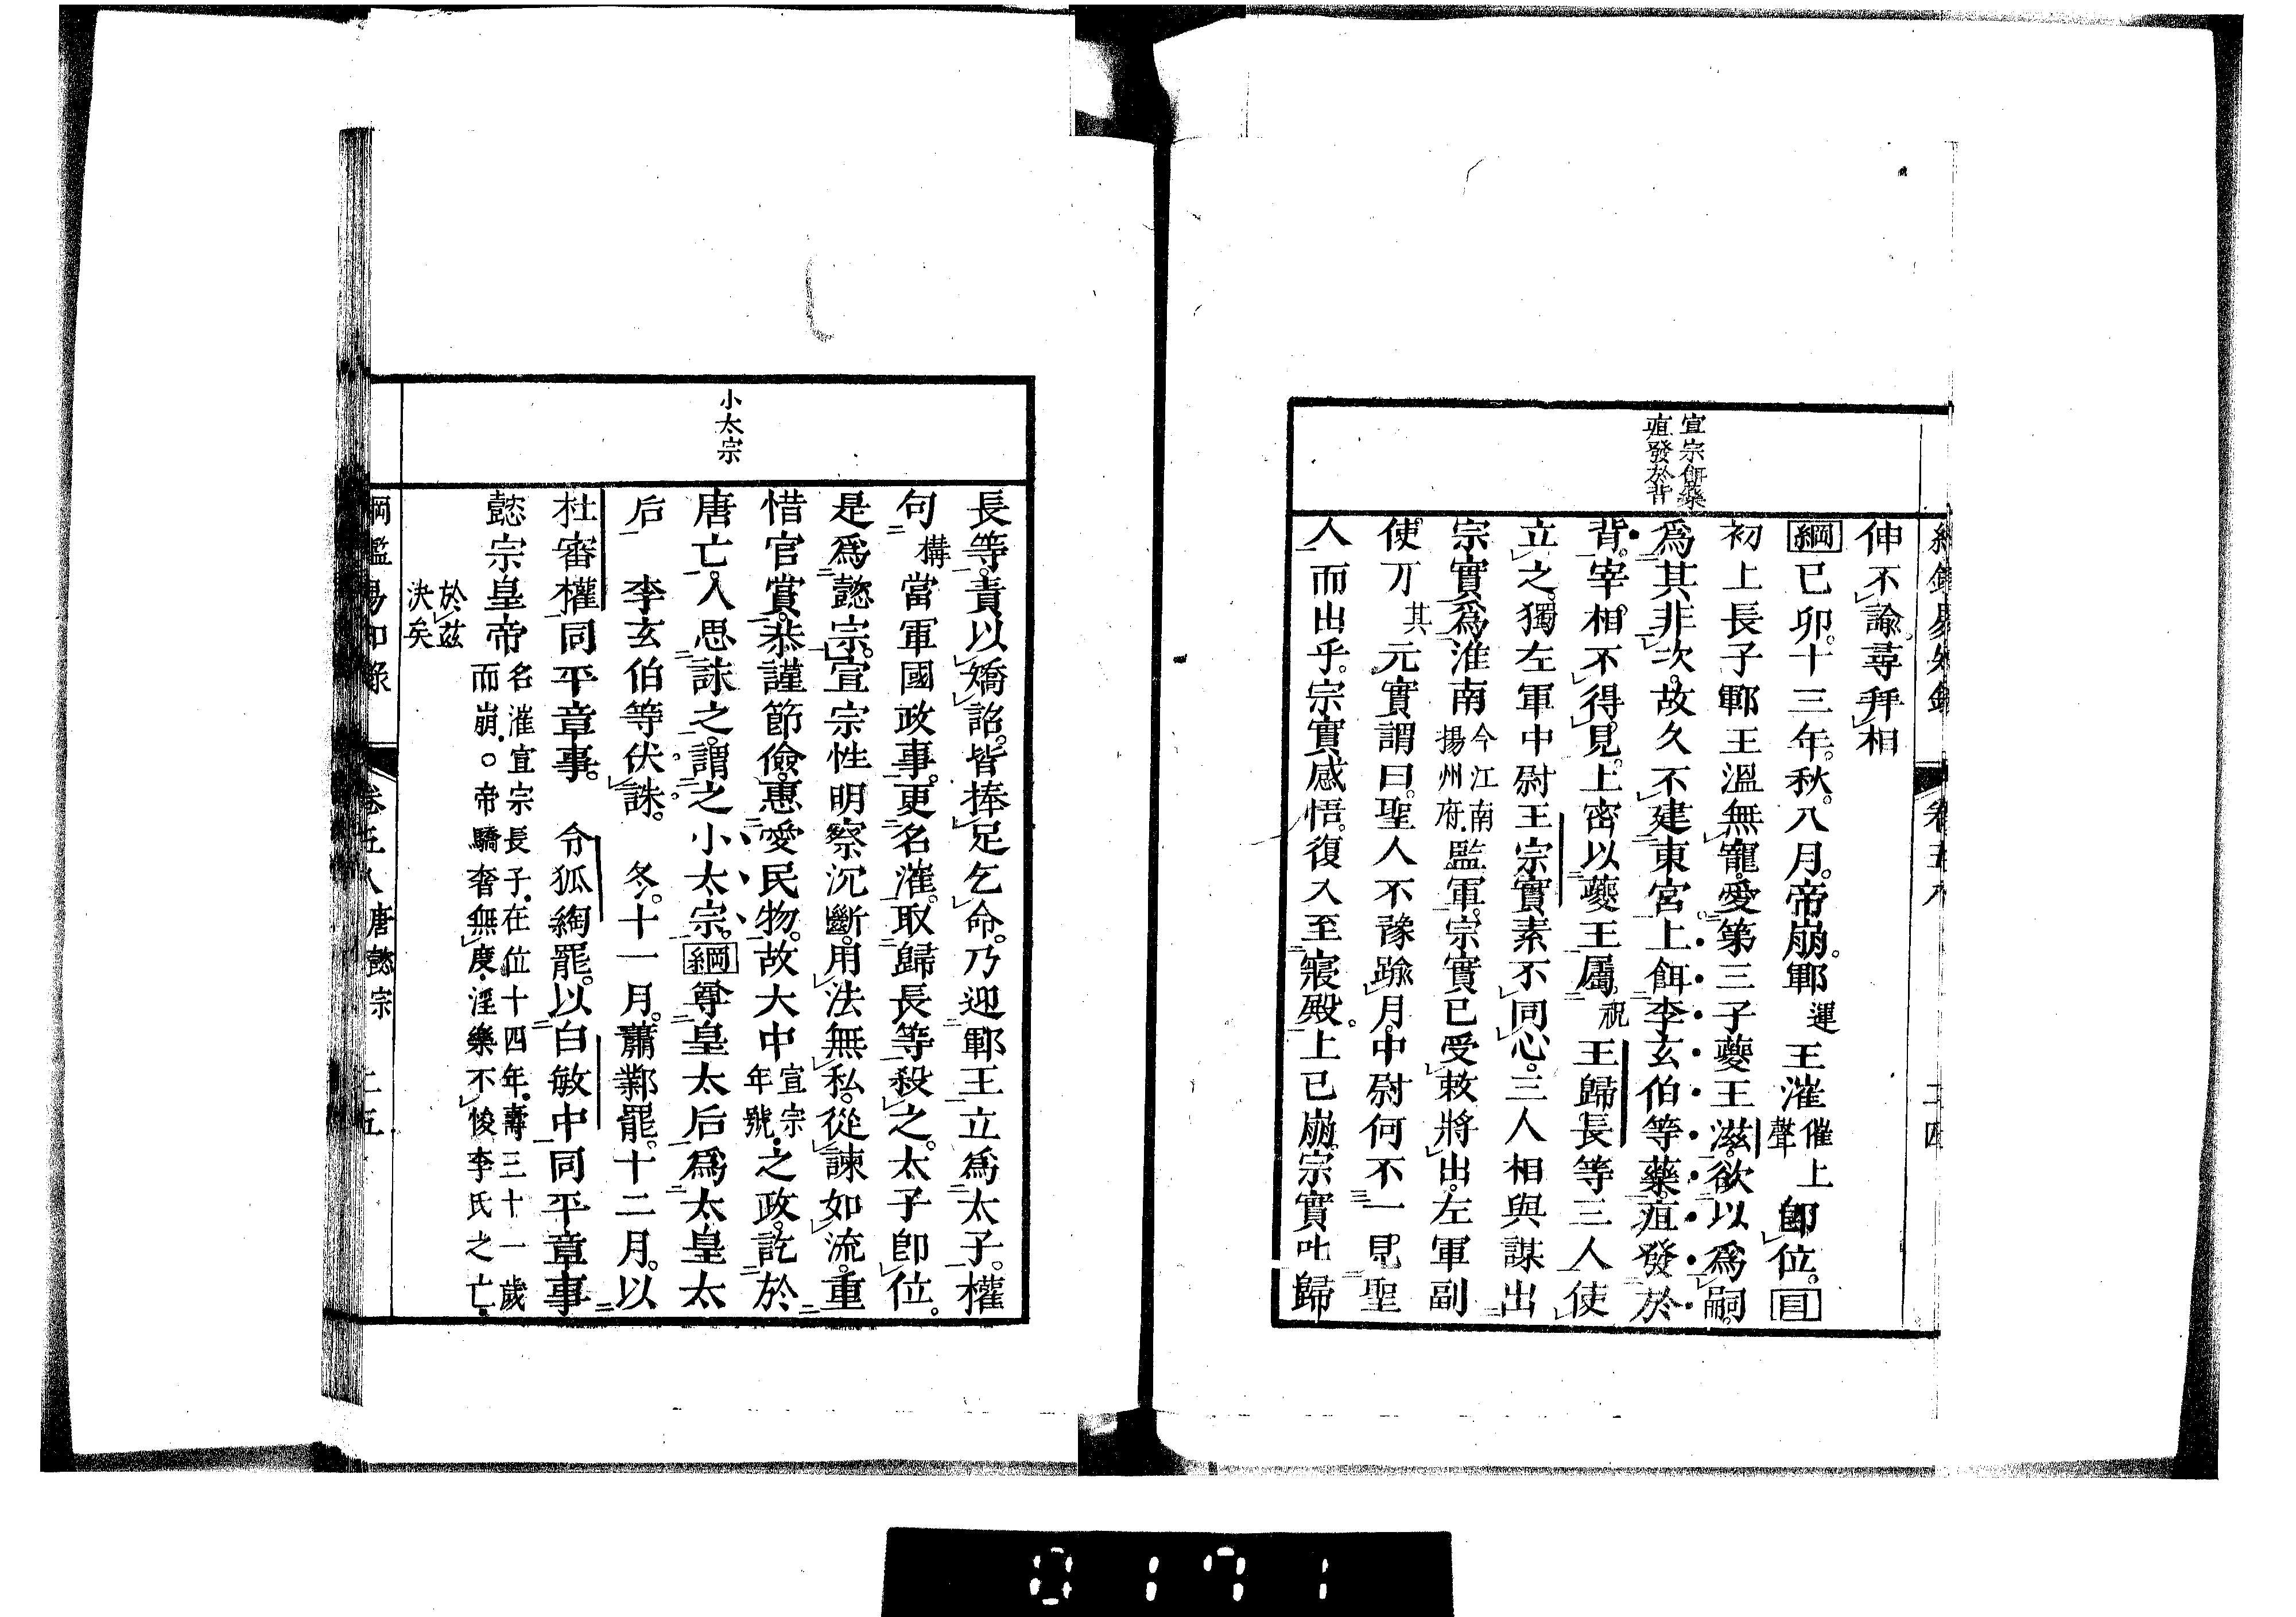 宣宗餌藥
疽發於背
伸不諭尋拜相
綱己卯。十三年。秋。八月。帝崩。鄆運王漼催上聲卽位。目
初上長子鄆王溫無寵。愛第三子夔王滋。欲以爲嗣。
爲其非次。故久不建東宮。上餌李玄伯等藥。疽發於
背。宰相不得見。上密以夔王屬祝王歸長等三人使
立之。獨左軍中尉王宗實素不同心。三人相與謀出
宗實爲淮南今江南揚州府監軍。宗實已受敕將出。左軍副
使丌其元實謂曰。聖人不豫踰月。中尉何不一見聖
人而出乎。宗實感悟。復入至寢殿。上已崩。宗實叱歸
小太宗
長等。責以矯詔。皆捧足乞命。乃迎鄆王立爲太子。權
句構當軍國政事。更名漼。取歸長等殺之。太子卽位。
是爲懿宗。宣宗性明察沉斷。用法無私。從諫如流。重
惜官賞。恭謹節儉。惠愛民物。故大中宣宗年號之政。訖於
唐亡。人思誅之。謂之小太宗。綱尊皇太后爲太皇太
后 李玄伯等伏誅。 冬。十一月。蕭鄴罷。十二月。以
杜審權同平章事。 令狐綯罷。以白敏中同平章事
懿宗皇帝名漼宣宗長子。在位十四年。壽三十一歲
而崩。○帝驕奢無度。淫樂不悛李氏之亡。
於茲
決矣
綱鑑易知錄 卷五八唐懿宗